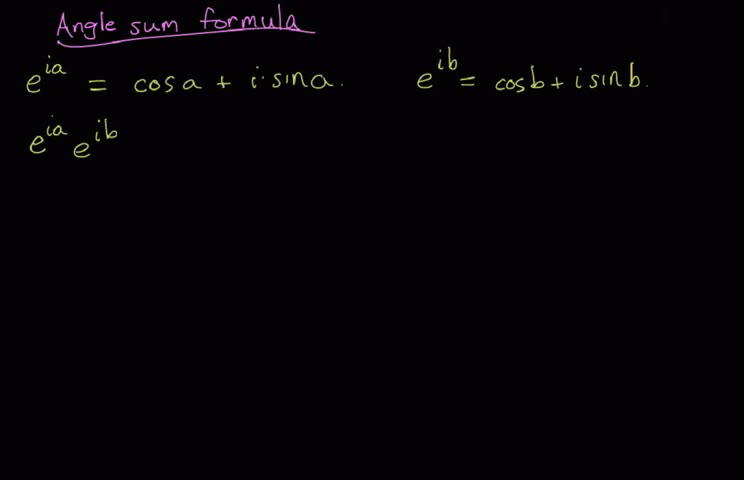 Angle sum formula
e^{ia} = cos a + i·sin a.    e^{ib} = cos b + i sin b.
e^{ia} e^{ib}